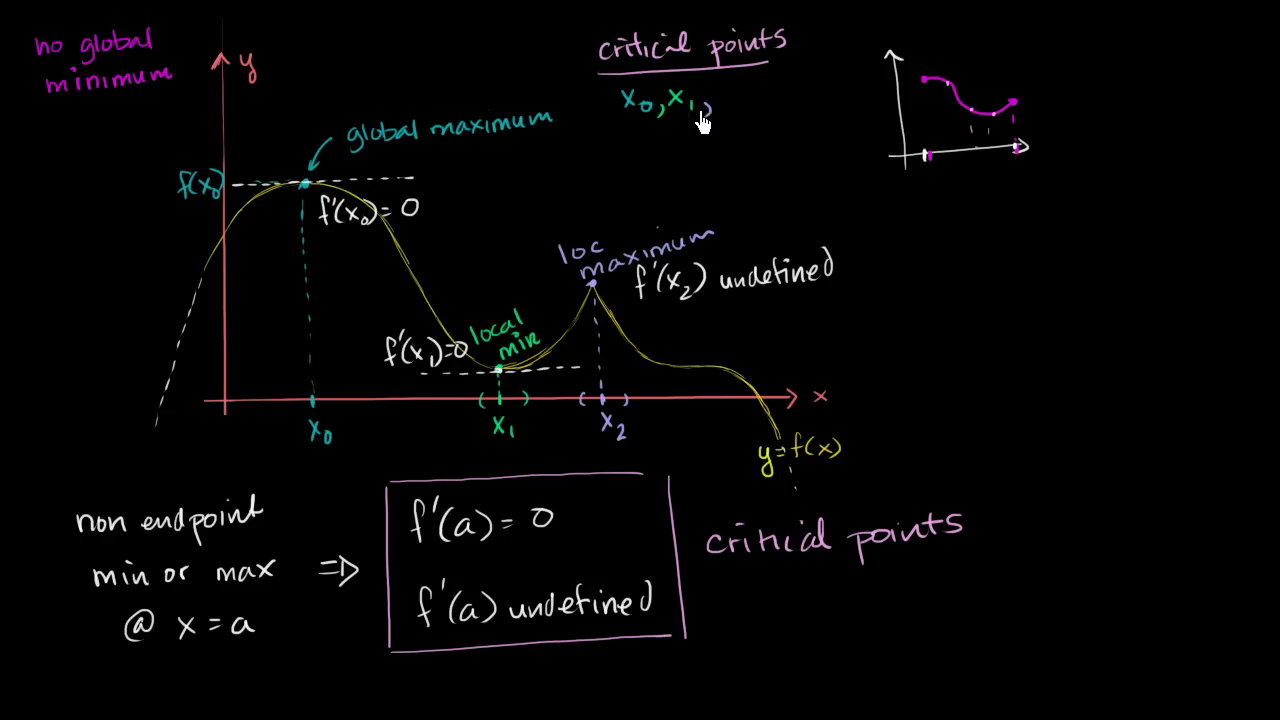 no global
minimum
y
critical points
x₀, x₁,
global maximum
f(x₀)
f'(x₀) = 0
loc
maximum
f'(x₂) undefined
local
min
f'(x₁)=0
x
x₀
x₁
x₂
y=f(x)
non endpoint
min or max
@ x = a
⇒
f'(a) = 0
f'(a) undefined
critical points